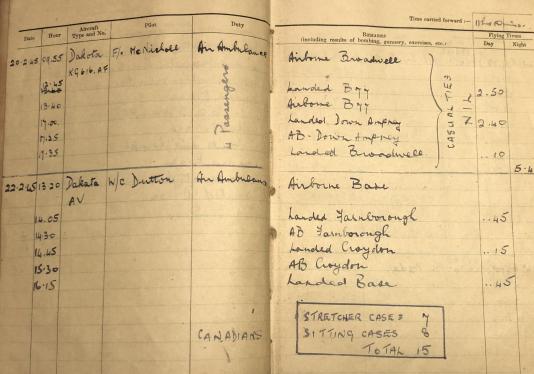 Time carried forward:-
Date Hour Aircraft Type and No. Pilot Duty Remarks (including results of bombing, gunnery, exercises, etc.) Flying Times
Day Night
20.2.45 09.55 Dakota F/o. McNicholl Air Ambulance Airborne Broadwell
KG616.AF
12.45 Landed B77 2.50
13.40 Airborne B77
17.00 Landed Down Ampney 2.40
17.25 AB. Down Ampney
17.35 Landed Broadwell ..10
4 Passengers
CASUALTIES
NIL
22.2.45 13.20 Dakota W/C Dutton Air Ambulance Airborne Base
AV
14.05 Landed Farnborough ..45
14.30 AB Farnborough
14.45 Landed Croydon ..15
15.30 AB Croydon
16.15 Landed Base ..45
STRETCHER CASES 7
CANADIANS SITTING CASES 8
TOTAL 15